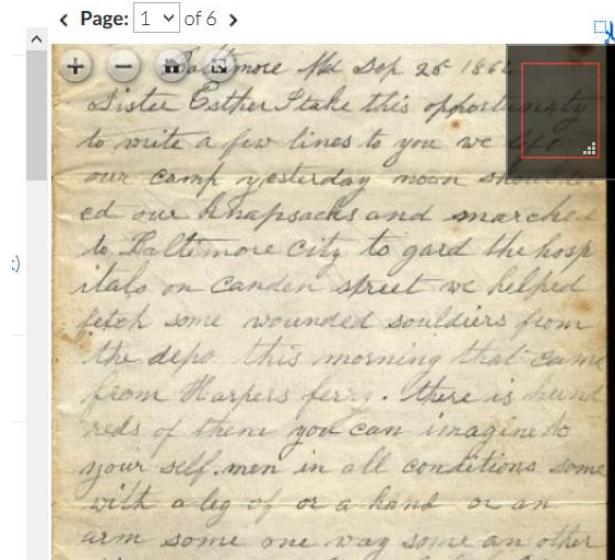 Page: 1 of 6
Baltimore Md Sep 26 186
Sister Esther I take this opportunaty
to write a few lines to you we left
our camp yesterday noon shoulder
ed our knapsacks and marched
to Baltimore city to gard the hosp
itals on Canden street we helped
fetch some wounded souldiers from
the depo this morning that came
from Harpers ferry. there is hund
reds of them you can imagine to
your self. men in all conditions some
with a leg of or a hand or an
arm some one way some an other